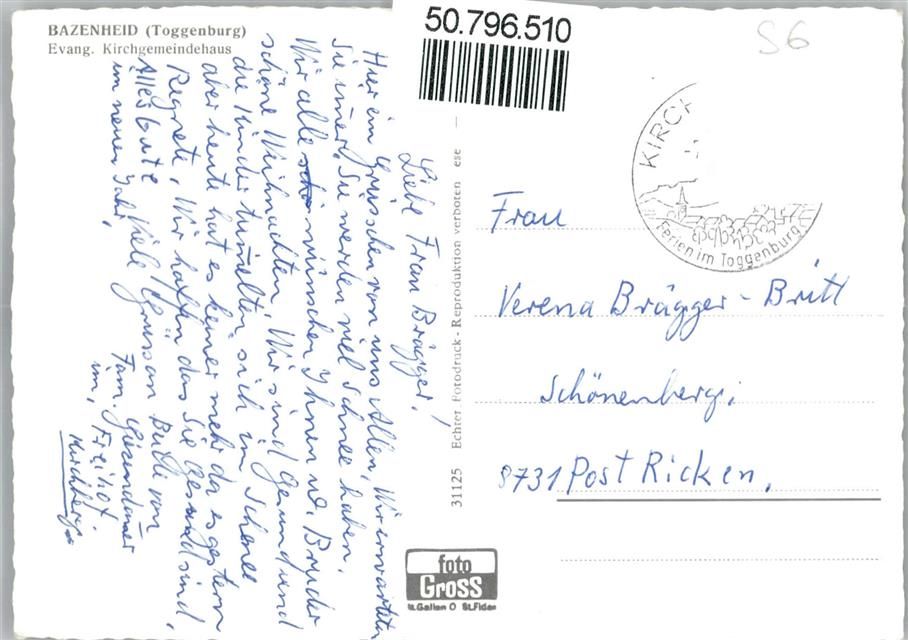 BAZENHEID (Toggenburg)
Evang. Kirchgemeindehaus
50.796.510
S6
Liebe Frau Brägger!
Hier ein Grüsschen von uns Allen, Wir erwarten
Sie immer. Sie werden viel Schnee haben.
Wir alle wünschen Ihnen u. Bruder
schöne Weihnachten. Wir sind Gesund und
die Kinder tumelten sich im Schnee
aber heute hat es keiner mehr da es gestern
Regnete. Wir hoffen das Sie Gesund sind.
Alles Gute Viele Grüss an Butti von
im neuen Jahr. Fam.
im, Freihof.
Kirchberg.
31125 Echter Fotodruck - Reproduktion verboten ese
KIRCH
Ferien im Toggenburg
Frau
Verena Brägger - Britt
Schönenberg.
8731 Post Ricken.
foto
Gross
St.Gallen O St.Fiden